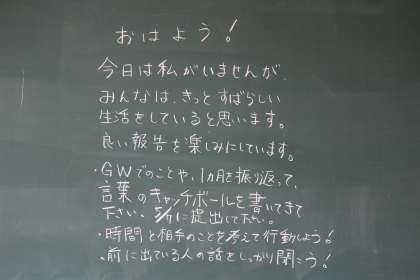 おはよう!
今日は私がいませんが、
みんなは、きっとすばらしい
生活をしていると思います。
良い報告を楽しみにしています。
・GWでのことや、1カ月を振り返って、
言葉のキャッチボールを書いてきて
下さい。5/7に提出して下さい。
・時間と相手のことを考えて行動しよう!
・前に出ている人の話をしっかり聞こう!